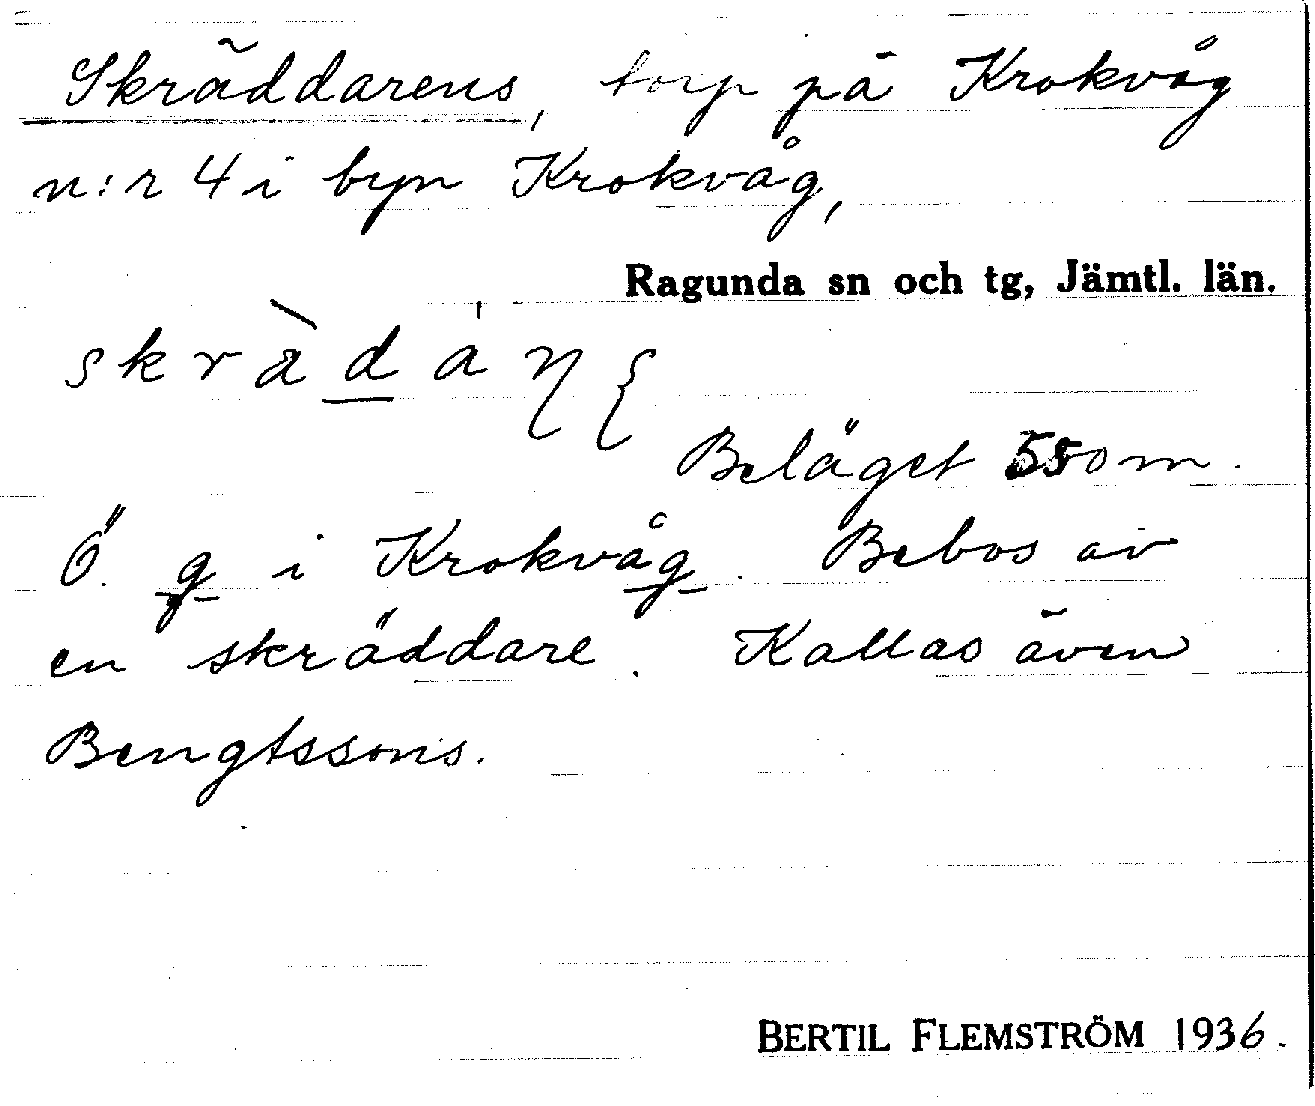 Skräddarens, torp på Krokvåg
n:r 4 i byn Krokvåg,
Ragunda sn och tg, Jämtl. län.
Beläget 550 m.
Ö. g i Krokvåg. Bebos av
en skräddare. Kallas även
Bengtssons.
BERTIL FLEMSTRÖM 1936.